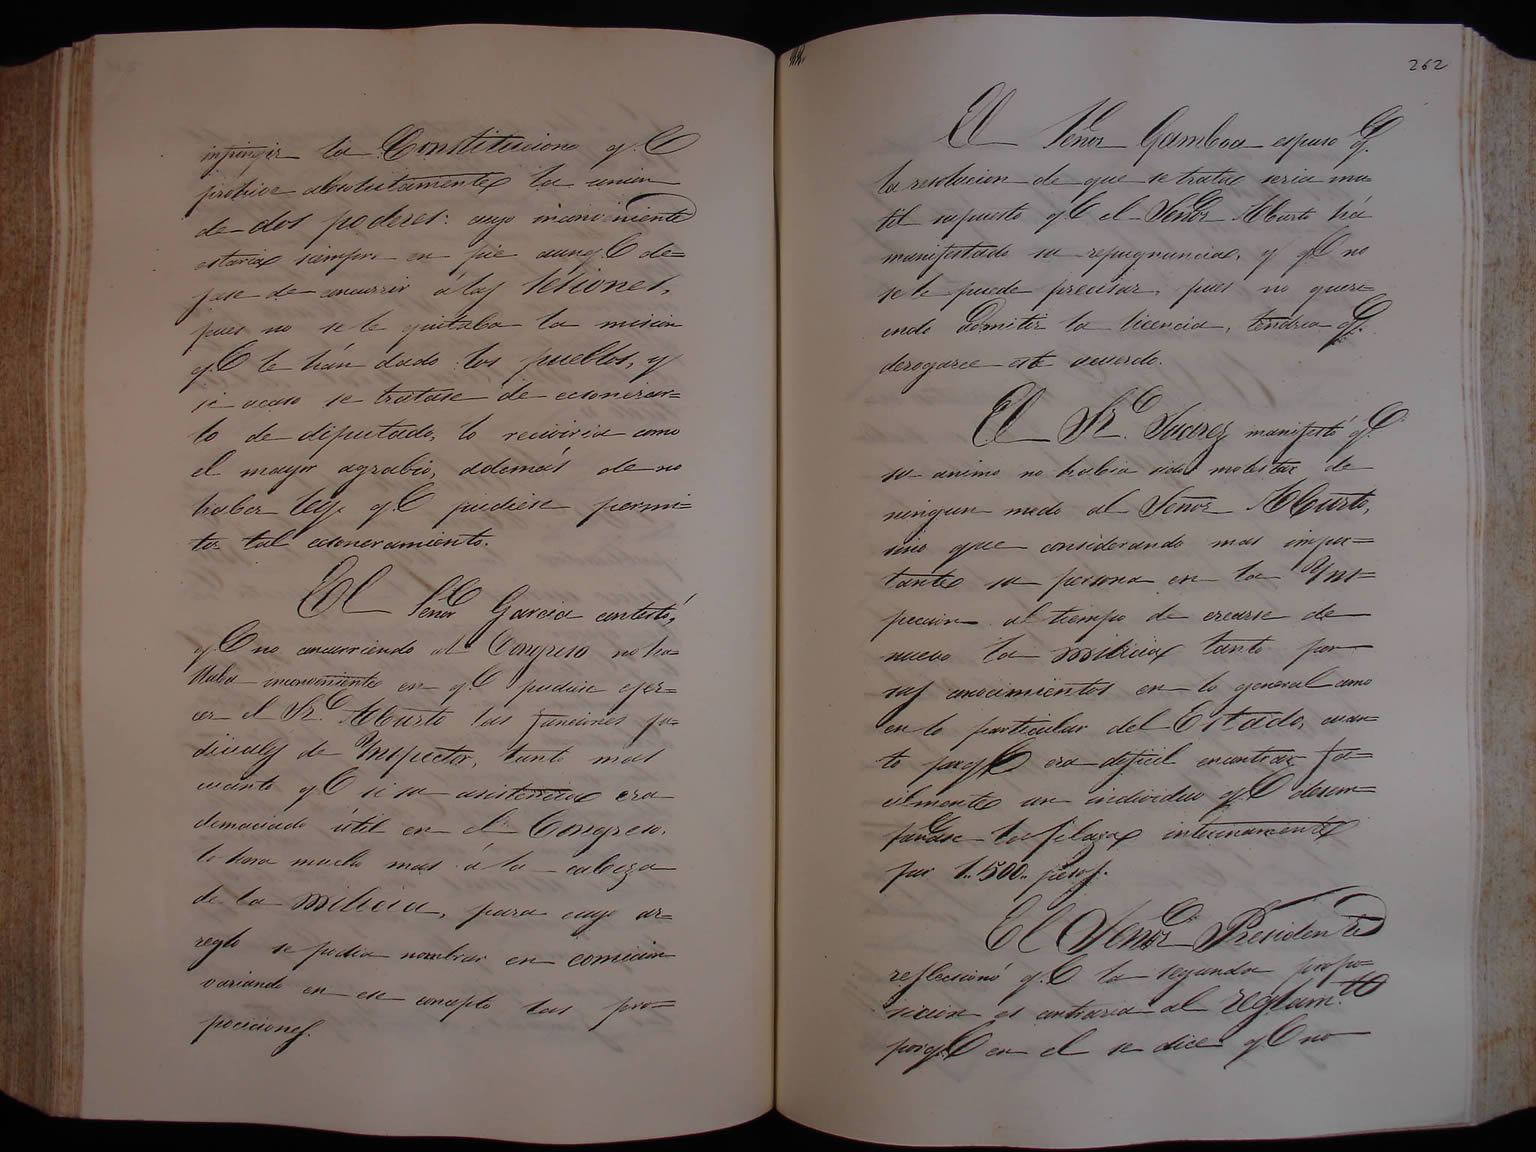 infringir la Constitucion q.e
prohive absolutamente la union
de dos poderes: cuyo inconveniente
estaria siempre en pie aunq.e de=
jase de concurrir á las sesiones,
pues no se le quitaba la mision
q.e le hán dado los pueblos, y
si acaso se tratase de ecsonerar=
lo de diputado, lo reciviria como
el mayor agrabio, además de no
haber ley q.e pudiese permi=
tir tal ecsoneramiento.
El Señor Garcia contestó,
q.e no concurriendo al Congreso no ha=
llaba inconveniente en q.e pudiese ejer=
cer el Sr. Aburto las funciones ju=
diciales de Ynspector, tanto mas
cuanto q.e si su asistencia era
demaciado útil en el Congreso,
lo hera mucho mas á la cabeza
de la milicia, para cuyo ar=
reglo se podia nombrar en comicion
variando en ese concepto las pro=
pociciones.
262
El Señor Gamboa espuso q.e
la resolucion de que se trata seria inu=
til supuesto q.e el Señor Aburto há
manifestado su repugnancia, y q.e no
se le puede precisar, pues no queri=
endo admitir la licencia, tendria q.e
derogarse este acuerdo.
El Sr. Suarez manifestó q.e
su animo no habia sido molestar de
ningun modo al Señor Aburto,
sino que considerando mas impor=
tante su persona en la Yns=
peccion al tiempo de crearse de
nuevo la milicia tanto por
sus conocimientos en lo general como
en lo particular del Estado, cuan=
to porq.e era dificil encontrar fa=
cilmente un individuo q.e desem=
peñase la plaza interinamente
por 1..500.. pesos.
El Señor Presidente
reflecsionó q.e la segunda propo=
sicion es contraria al reglam.to
porq.e en el se dice q.e no